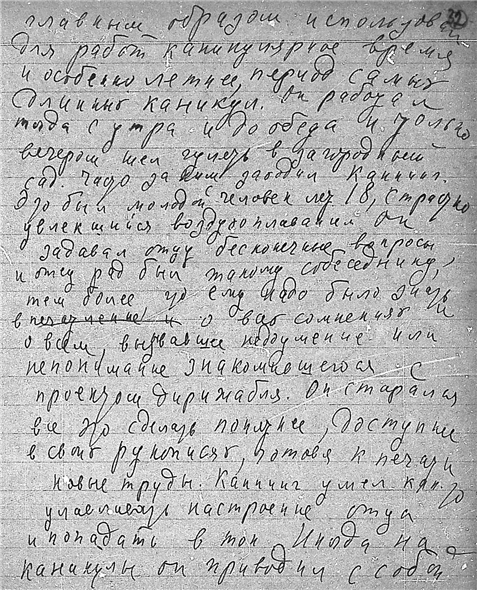 32
главным образом использовал
для работ каникулярное время
и особенно летнее, период самых
длинных каникул. Он работал
тогда с утра и до обеда и только
вечером шел гулять в загородный
сад. Часто за ним заходил Каннинг.
Это был молодой человек лет 18, страстно
увлекшийся воздухоплаванием. Он
задавал отцу бесконечные вопросы
и отец рад был такому собеседнику,
тем более что ему надо было знать
в и о всех сомнениях и
о всем, вызвавшем недоумение или
непонимание знакомившегося с
проектом дирижабля. Он старался
все это сделать понятнее, доступнее
в своих рукописях, готовя к печати
новые труды. Каннинг умел как-то
улавливать настроение отца
и попадать в тон. Иногда на
каникулы он приводил с собой